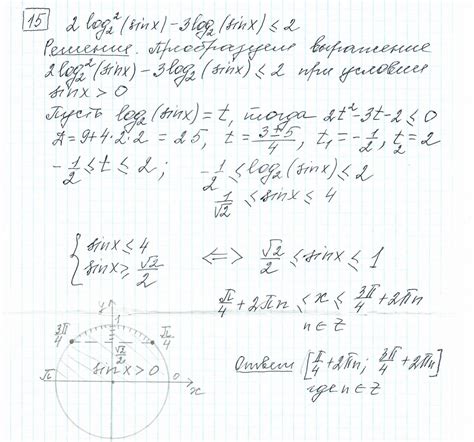 15 2 log₂²(sinx) − 3 log₂(sinx) ≤ 2
Решение. Преобразуем выражение
2 log₂²(sinx) − 3 log₂(sinx) ≤ 2 при условии
sinx > 0
Пусть log₂(sinx) = t, тогда 2t² − 3t − 2 ≤ 0
D = 9 + 4·2·2 = 25, t = (3 ± 5)/4, t₁ = −1/2, t₂ = 2
−1/2 ≤ t ≤ 2; −1/2 ≤ log₂(sinx) ≤ 2
1/√2 ≤ sinx ≤ 4
{ sinx ≤ 4
sinx ≥ √2/2 <=> √2/2 ≤ sinx ≤ 1
π/4 + 2πn ≤ x ≤ 3π/4 + 2πn
n ∈ Z
y
1
3π/4 π/4
√2/2
sinx > 0
π 0 x
Ответ: [π/4 + 2πn; 3π/4 + 2πn]
где n ∈ Z